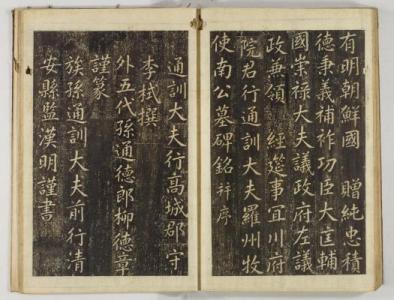 有明朝鮮國 贈純忠積
德秉義補祚功臣大匡輔
國崇祿大夫議政府左議
政兼領 經筵事宜川府
院君行通訓大夫羅州牧
使南公墓碑銘幷序
通訓大夫行高城郡守
李軾撰
外五代孫通德郎柳德章
謹篆
族孫通訓大夫前行淸
安縣監漢明謹書